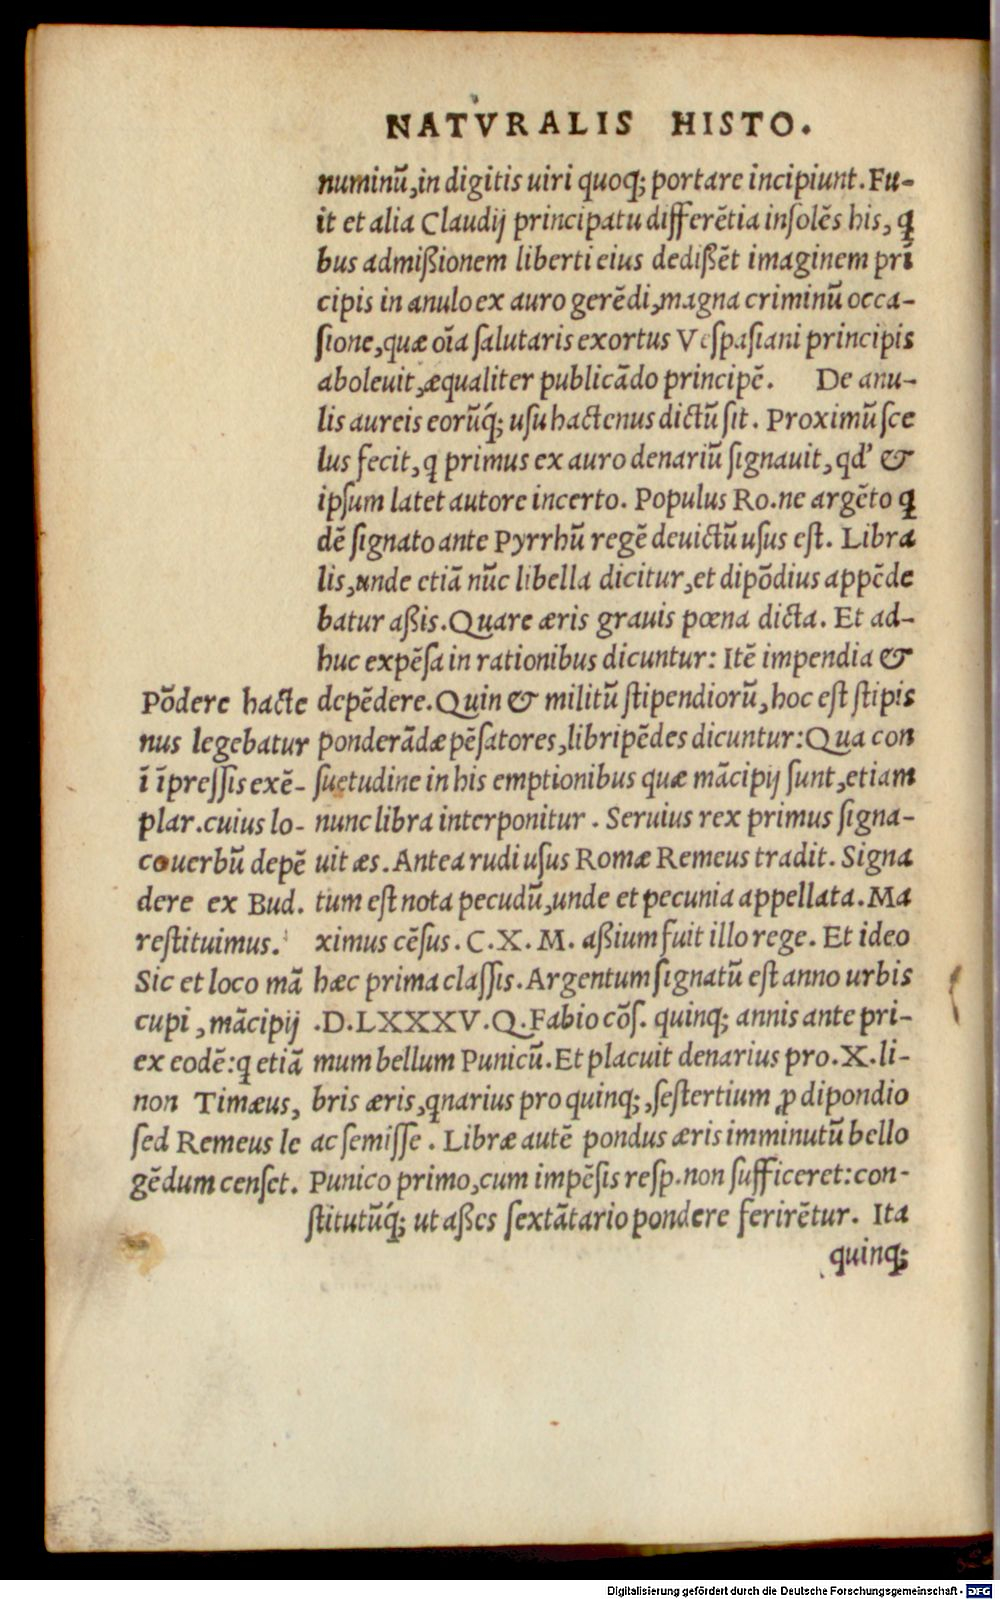 NATVRALIS HISTO.
numinũ, in digitis uiri quoq; portare incipiunt. Fu-
it et alia Claudij principatu differẽtia insolẽs his, ꝗ
bus admißionem liberti eius dedißẽt imaginem prĩ
cipis in anulo ex auro gerẽdi, magna criminũ occa-
ſione, quæ oĩa ſalutaris exortus Veſpaſiani principis
aboleuit, æqualiter publicãdo principẽ. De anu-
lis aureis eorũq́; uſu hactenus dictũ ſit. Proximũ ſce
lus fecit, ꝗ primus ex auro denariũ ſignauit, qd' &
ipſum latet autore incerto. Populus Ro. ne argẽto ꝗ
dẽ ſignato ante Pyrrhũ regẽ deuictũ uſus eſt. Libra
lis, unde etiã nũc libella dicitur, et dipõdius appẽde
batur aßis. Quare æris grauis pœna dicta. Et ad-
huc expẽſa in rationibus dicuntur: Itẽ impendia &
depẽdere. Quin & militũ ſtipendiorũ, hoc eſt ſtipis
ponderãdæ pẽſatores, libripẽdes dicuntur: Qua con
ſuetudine in his emptionibus quæ mãcipij ſunt, etiam
nunc libra interponitur. Seruius rex primus ſigna-
uit æs. Antea rudi uſus Romæ Remeus tradit. Signa
tum eſt nota pecudũ, unde et pecunia appellata. Ma
ximus cẽſus. C. X. M. aßium fuit illo rege. Et ideo
hæc prima claſſis. Argentum ſignatũ eſt anno urbis
.D. LXXXV. Q. Fabio cõſ. quinq; annis ante pri-
mum bellum Punicũ. Et placuit denarius pro. X. li-
bris æris, ꝗnarius pro quinq;, ſeſtertium ꝓ dipondio
ac ſemiſſe. Libræ autẽ pondus æris imminutũ bello
Punico primo, cum impẽſis reſp. non ſufficeret: con-
ſtitutũq́; ut aßes ſextãtario pondere ferirẽtur. Ita
quinq;
Põdere hacte
nus legebatur
ĩ ĩpreſſis exẽ-
plar. cuius lo-
co uerbũ depẽ
dere ex Bud.
reſtituimus.
Sic et loco mã
cupi, mãcipij
ex eodẽ: ꝗ etiã
non Timæus,
ſed Remeus le
gẽdum cenſet.
Digitalisierung gefördert durch die Deutsche Forschungsgemeinschaft - DFG